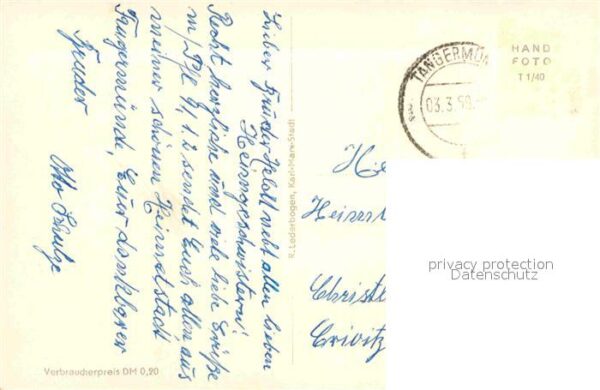 Lieber Bruder Klatt nebst allen lieben
Heimgeschwistern!
Recht herzliche und viele liebe Grüße
m/ Ps. 91, 1.2 sendet Euch allen aus
meiner schönen Heimatstadt
Tangermünde, Euer dankbarer
Bruder
Otto Schulze
R. Lederbogen, Karl-Marx-Stadt
Verbraucherpreis DM 0,20
TANGERMÜN
03.3.59
HAND
FOTO
T 1/40
Christ
Crivitz
privacy protection
Datenschutz